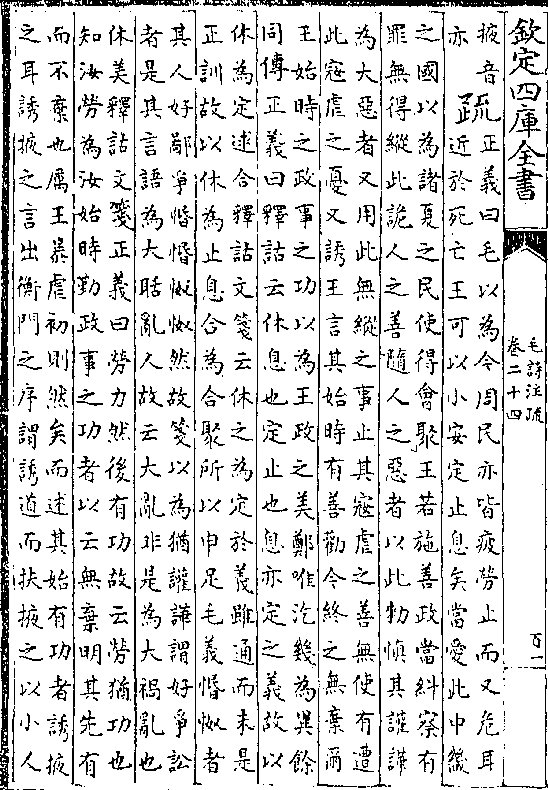 欽定四庫全書
毛詩注疏
卷二十四
百一
掖音
亦
疏
正義曰毛以為今周民亦皆疲勞止而又危耳
近於死亡王可以小安定止息矣當愛此中畿
之國以為諸夏之民使得會聚王若施善政當糾察有
罪無得縱此詭人之善隨人之惡者以此勑慎其讙譁
為大惡者又用此無縱之事止其寇虐之善無使有遭
此寇虐之憂又誘王言其始時有善勸令終之無棄爾
王始時之政事之功以為王政之美鄭唯汔幾為異餘
同傳正義曰釋詁云休息也定止也息亦定之義故以
休為定述合釋詁文箋云休之為定於義雖通而未是
正訓故以休為止息合為合聚所以申足毛義惛怓者
其人好鄙爭惛惛怓怓然故箋以為猶讙譁謂好爭訟
者是其言語為大聒亂人故云大亂非是為大禍亂也
休美釋詁文箋正義曰勞力然後有功故云勞猶功也
知汝勞為汝始時勤政事之功者以云無棄明其先有
而不棄也厲王暴虐初則然矣而述其始有功者誘掖
之耳誘掖之言出衡門之序謂誘道而扶掖之以小人